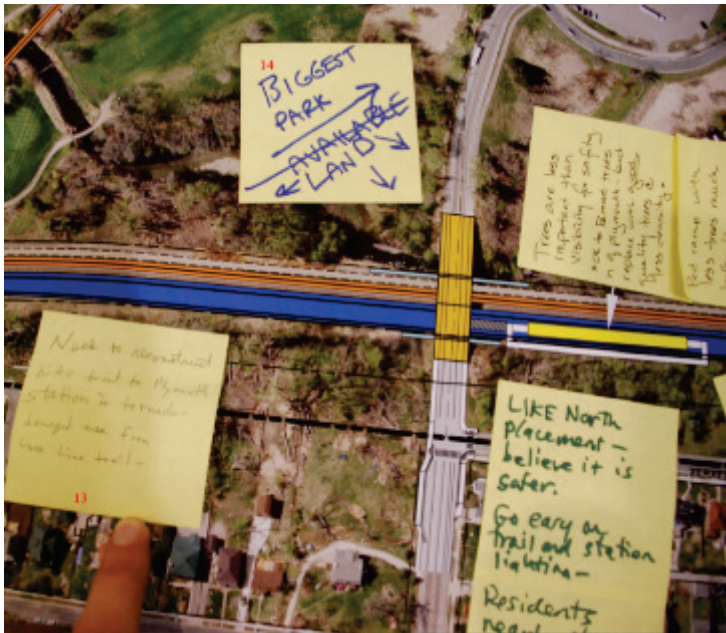 14
BIGGEST
PARK
AVAILABLE
LAND
Trees are less
important than
visibility for safety
nice to remove trees
n. of plymouth but
replace with good
quality trees &
less density.
Ped ramp with
less trees
Need to reconstruct
bike trail to Plymouth
station in tornado
damaged area from
Luce Line trail -
13
LIKE North
placement -
believe it is
safer.
Go easy on
trail and station
lighting -
Residents